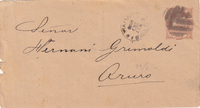 Señor
Hernani Grimaldi
Oruro